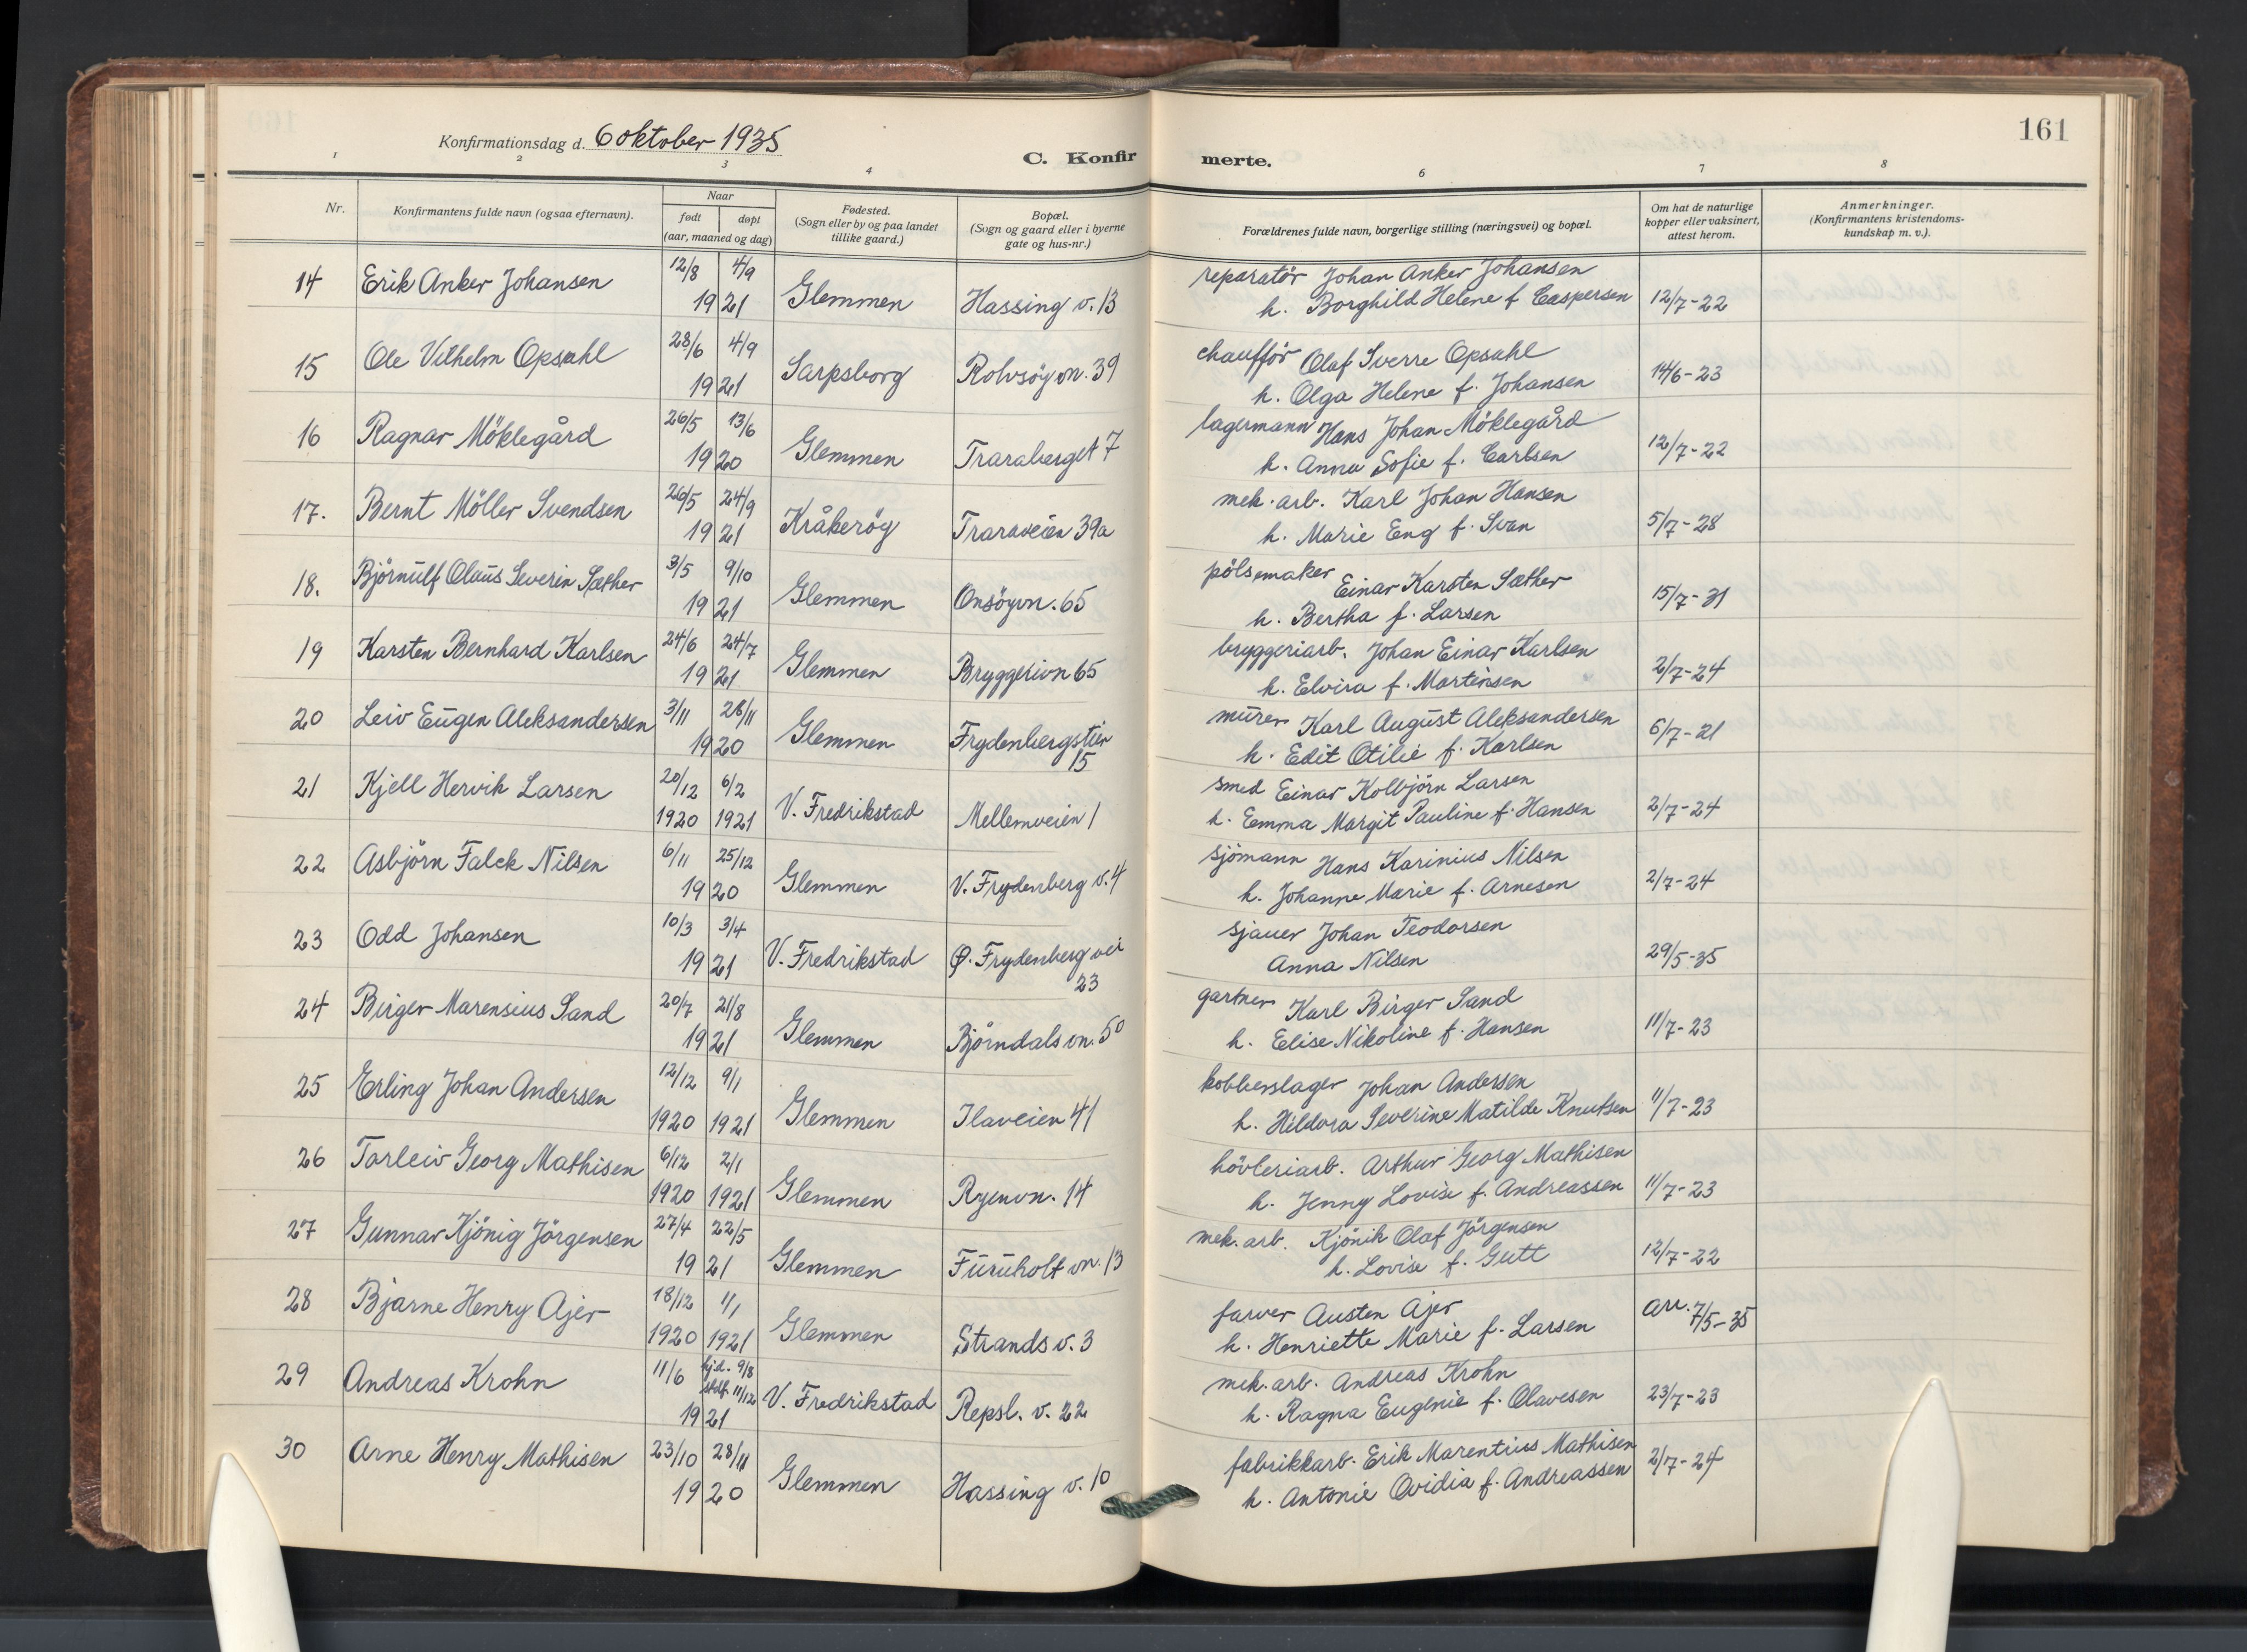 161
Konfirmationsdag d. 6 oktober 1935
C. Konfir merte.
1 2 3 4 6 7 8
Nr.
Konfirmantens fulde navn (ogsaa efternavn).
Naar
født døpt
(aar, maaned og dag)
Fødested.
(Sogn eller by og paa landet
tillike gaard.)
Bopæl.
(Sogn og gaard eller i byerne
gate og hus-nr.)
Forældrenes fulde navn, borgerlige stilling (næringsvei) og bopæl.
Om hat de naturlige
kopper eller vaksinert,
attest herom.
Anmerkninger.
(Konfirmantens kristendoms-
kundskap m. v.).
14 Erik Anker Johansen 12/8 4/9 1921 Glemmen Hassing v. 13 reparatör Johan Anker Johansen
h. Borghild Helene f Caspersen 12/7-22
15 Ole Vilhelm Opsahl 28/6 4/9 1921 Sarpsborg Rolvsöy vn. 39 chaufför Olaf Sverre Opsahl
h. Olga Helene f. Johansen 14/6-23
16 Ragnar Möklegård 26/5 13/6 1920 Glemmen Traraberget 7 lagermann Hans Johan Möklegård
h. Anna Sofie f. Carlsen 12/7-22
17. Bernt Möller Svendsen 26/5 24/9 1921 Kråkeröy Traraveien 39a mek. arb. Karl Johan Hansen
h. Marie Eng f. Svan 5/7-28
18. Björnulf Olaus Severin Sæther 3/5 9/10 1921 Glemmen Onsöyvn. 65 pölsemaker Einar Karsten Sæther
h. Bertha f. Larsen 15/7-31
19 Karsten Bernhard Karlsen 24/6 24/7 1921 Glemmen Bryggerivn 65 bryggeriarb. Johan Einar Karlsen
h. Elvira f. Martinsen 2/7-24
20 Leiv Eugen Aleksandersen 3/11 28/11 1920 Glemmen Frydenbergstien
15 murer Karl August Aleksandersen
h. Edit Otilie f. Karlsen 6/7-21
21 Kjell Hervik Larsen 20/12 1920 6/2 1921 V. Fredrikstad Mellemveien 1 smed Einar Kolbjörn Larsen
h. Emma Margit Pauline f. Hansen 2/7-24
22 Asbjörn Falck Nilsen 6/11 25/12 1920 Glemmen V. Frydenberg v. 4 sjömann Hans Karinius Nilsen
h. Johanne Marie f. Arnesen 2/7-24
23 Odd Johansen 10/3 3/4 1921 V. Fredrikstad Ø. Frydenberg vei
23 sjauer Johan Teodorsen
Anna Nilsen 29/5-35
24 Birger Marensius Sand 20/7 21/8 1921 Glemmen Björndals vn. 50 gartner Karl Birger Sand
h. Elise Nikoline f. Hansen 11/7-23
25 Erling Johan Andersen 12/12 1920 9/1 1921 Glemmen Ilaveien 41 kobberslager Johan Andersen
h. Hildora Severine Matilde Knutsen 11/7-23
26 Torleiv Georg Mathisen 6/12 1920 2/1 1921 Glemmen Ryenvn. 14 hövleriarb. Arthur Georg Mathisen
h. Jenny Lovise f. Andreassen 11/7-23
27 Gunnar Kjönig Jörgensen 27/4 22/5 1921 Glemmen Furuholt vn. 13 mek. arb. Kjönik Olaf Jörgensen
h. Lovise f. Gutt 12/7-22
28 Bjarne Henry Ajer 18/12 1920 1/1 1921 Glemmen Strands v. 3 farver Austen Ajer
h. Henriette Marie f. Larsen 7/5-35
29 Andreas Krohn 11/6 hjd. 9/8 stdf. 11/12 1921 V. Fredrikstad Repsl. v. 22 mek. arb. Andreas Krohn
h. Ragna Eugenie f. Olavesen 23/7-23
30 Arne Henry Mathisen 23/10 28/11 1920 Glemmen Hassing v. 10 fabrikkarb. Erik Marentius Mathisen
h. Antonie Ovidia f. Andreassen 2/7-24